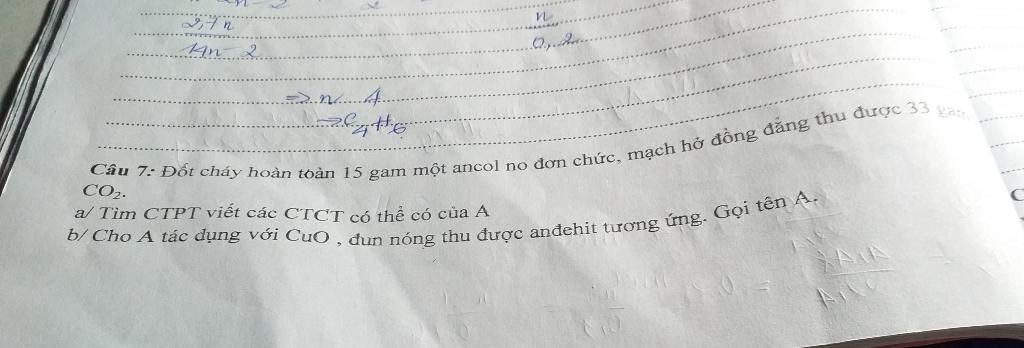 2,7n n
14n - 2 0,2
=> n 4
=> C4H6
Câu 7: Đốt cháy hoàn toàn 15 gam một ancol no đơn chức, mạch hở đồng đẳng thu được 33 gam
CO2.
a/ Tìm CTPT viết các CTCT có thể có của A
b/ Cho A tác dụng với CuO , đun nóng thu được anđehit tương ứng. Gọi tên A.